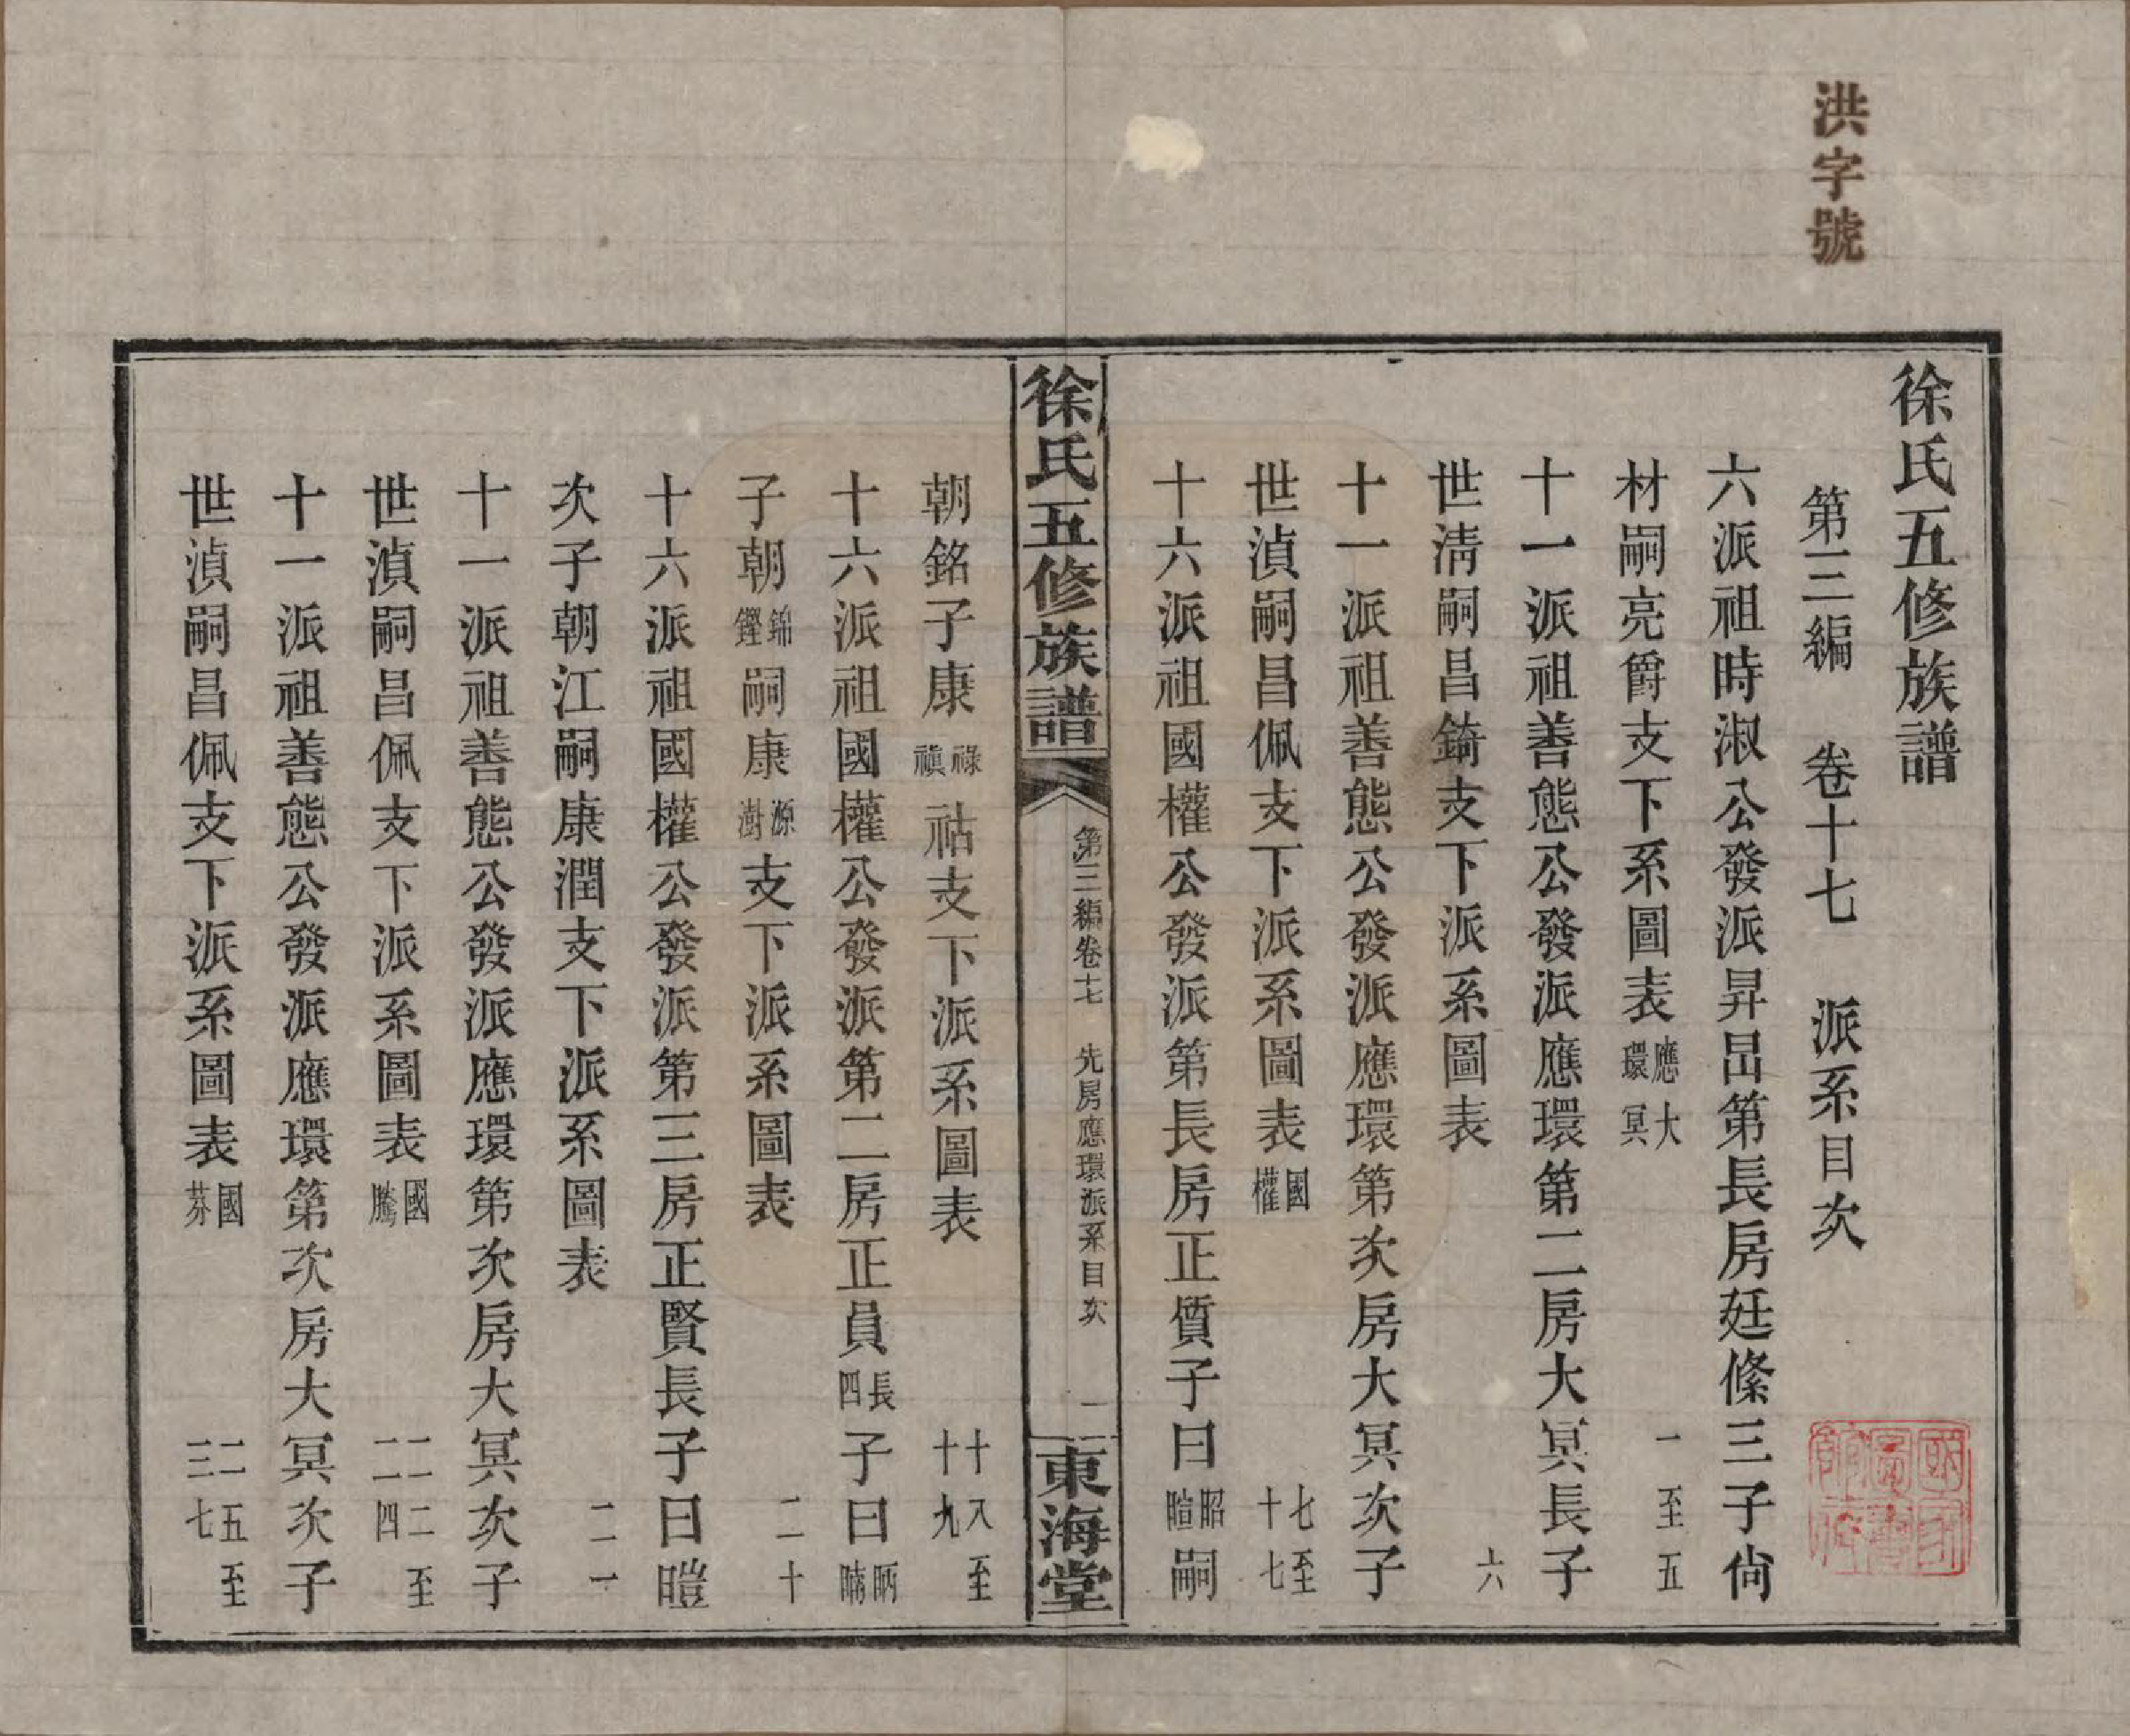 洪字號
徐氏五修族譜
第三編 卷十七 派系目次
六派祖時淑公發派昇旵第長房廷絛三子尙
材嗣亮爵支下系圖表 應環 大冥 一至五
十一派祖善態公發派應環第二房大冥長子
世淸嗣昌錡支下派系圖表 六
十一派祖善態公發派應環第次房大冥次子
世湞嗣昌佩支下派系圖表 國權 七至十七
十六派祖國權公發派第長房正質子曰昭暄嗣
徐氏五修族譜 第三編卷十七 先房應環派系目次 一 東海堂
朝銘子康祿禛祜支下派系圖表 十八至十九
十六派祖國權公發派第二房正員長四子曰昞暔
子朝錦鏗嗣康源澍支下派系圖表 二十
十六派祖國權公發派第三房正賢長子曰暟
次子朝江嗣康潤支下派系圖表 二一
十一派祖善態公發派應環第次房大冥次子
世湞嗣昌佩支下派系圖表 國騰 二二至二四
十一派祖善態公發派應環第次房大冥次子
世湞嗣昌佩支下派系圖表 國芬 二五至三七